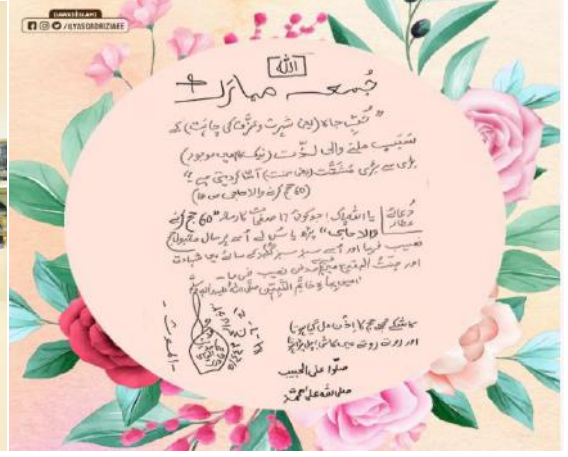 DAWATEISLAMI
/ILYASQADRIZIAEE
اللہ
جُمعہ مبارک
"حُبِّ جاہ (یعنی شہرت و عزّت کی چاہت) کے
سَبَب ملنے والی لذّت (نیک کام میں موجود)
بڑی سے بڑی مَشَقَّت (یعنی محنت) آسان کر دیتی ہے"
(60 حج کرنے والا حاجی ص)
دُعائے عطار یا اللہ پاک! جو کوئی 17 صفحات کا رسالہ "60 حج کرنے
والا حاجی" پڑھ یا سُن لے اُسے ہر سال مقبول حج
نصیب فرما اور اُسے سبز سبز گنبد کے سائے میں شہادت
اور جنّتُ البقیع میں مدفن نصیب فرما۔
اٰمین بجاہِ خاتَمِ النَّبِیّٖن صلّی اللہ علیہ واٰلہٖ وسلّم
کاش کہ مجھے حج کا اِذن مل گیا ہوتا
اور روتے روتے میں کاش! چل پڑا ہوتا
صلّوا علی الحبیب
صلی اللہ علی محمد